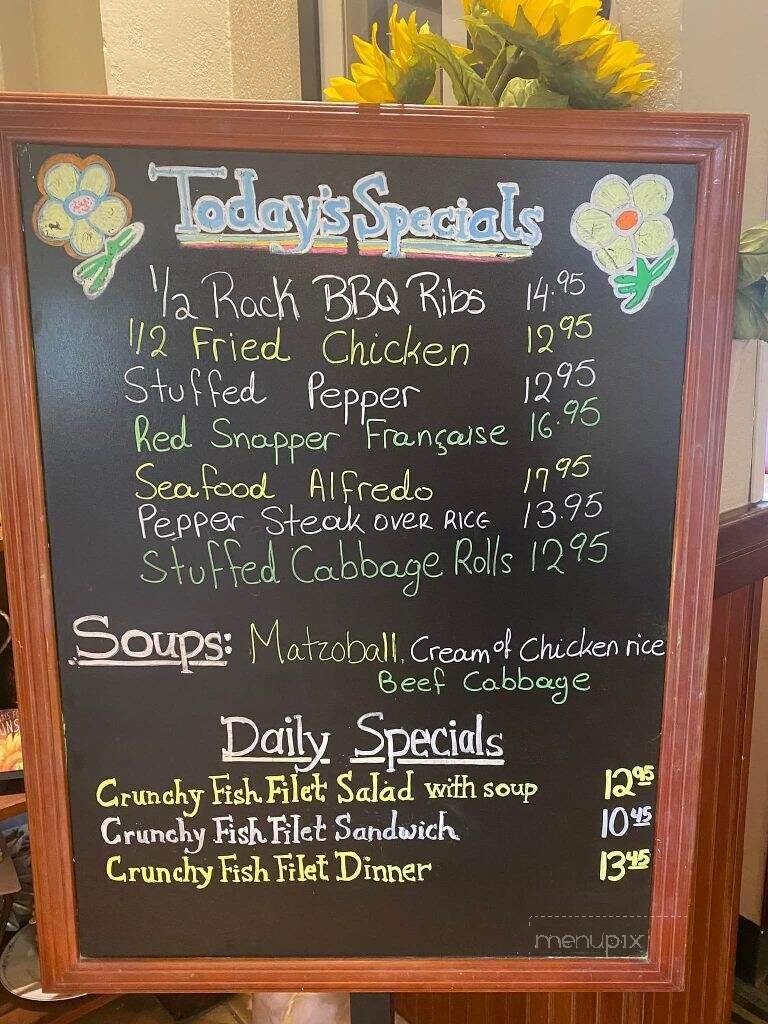 Today's Specials
1/2 Rack BBQ Ribs 14.95
1/2 Fried Chicken 12 95
Stuffed Pepper 12 95
Red Snapper Française 16.95
Seafood Alfredo 17 95
Pepper Steak OVER RICE 13.95
Stuffed Cabbage Rolls 12 95
Soups: Matzoball, Cream of Chicken rice
Beef Cabbage
Daily Specials
Crunchy Fish Filet Salad with soup 12 95
Crunchy Fish Filet Sandwich 10 45
Crunchy Fish Filet Dinner 13 45
menupix